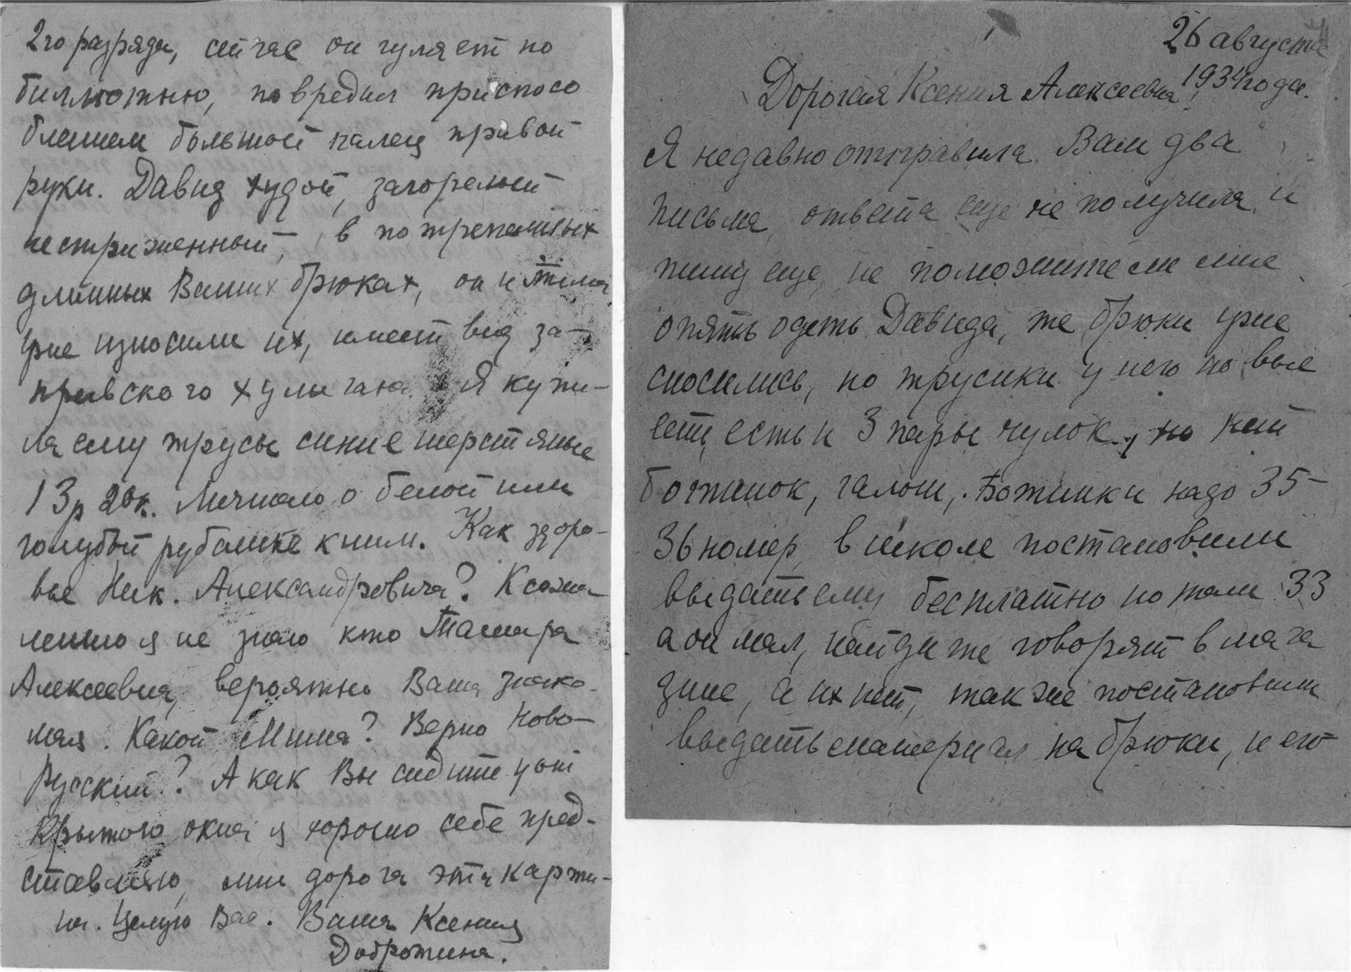 26 августа
1934 года.
Дорогая Ксения Алексеевна!
Я недавно отправила Вам два
письма, ответа еще не получила и
пишу еще, не поможите ли мне
опять одеть Давида, же брюки уже
сносились, но трусики у него новые
есть, есть и 3 пары чулок, но нет
ботинок, галош. Ботинки надо 35-
36 номер, в школе постановили
выдать ему бесплатно но дали 33
а он мал, найди же говорят в мага
зине, а их нет, также постановили
выдать материал на брюки, и его
2го разряда, сейчас он гуляет по
биллютню, повредил приспосо
блением большой палец правой
руки. Давид худой, загорелый
нестриженный, в потрепанных
длинных Ваших брюках, он и Тима
уже износили их, имеет вид за-
правского хулигана. Я купи-
ла ему трусы синие шерстяные
13р 20к. Мечтаю о белой или
голубой рубашке к ним. Как здоро-
вье Ник. Александровича? К сожа-
лению я не знаю кто Тамара
Алексеевна, вероятно Ваша знако-
мая. Какой Миша? Верно Ново-
Русский? А как Вы сидите у от
крытого окна я хорошо себе пред-
ставляю, мне дорога эта карти-
на. Целую Вас. Ваша Ксения
Доброхина.